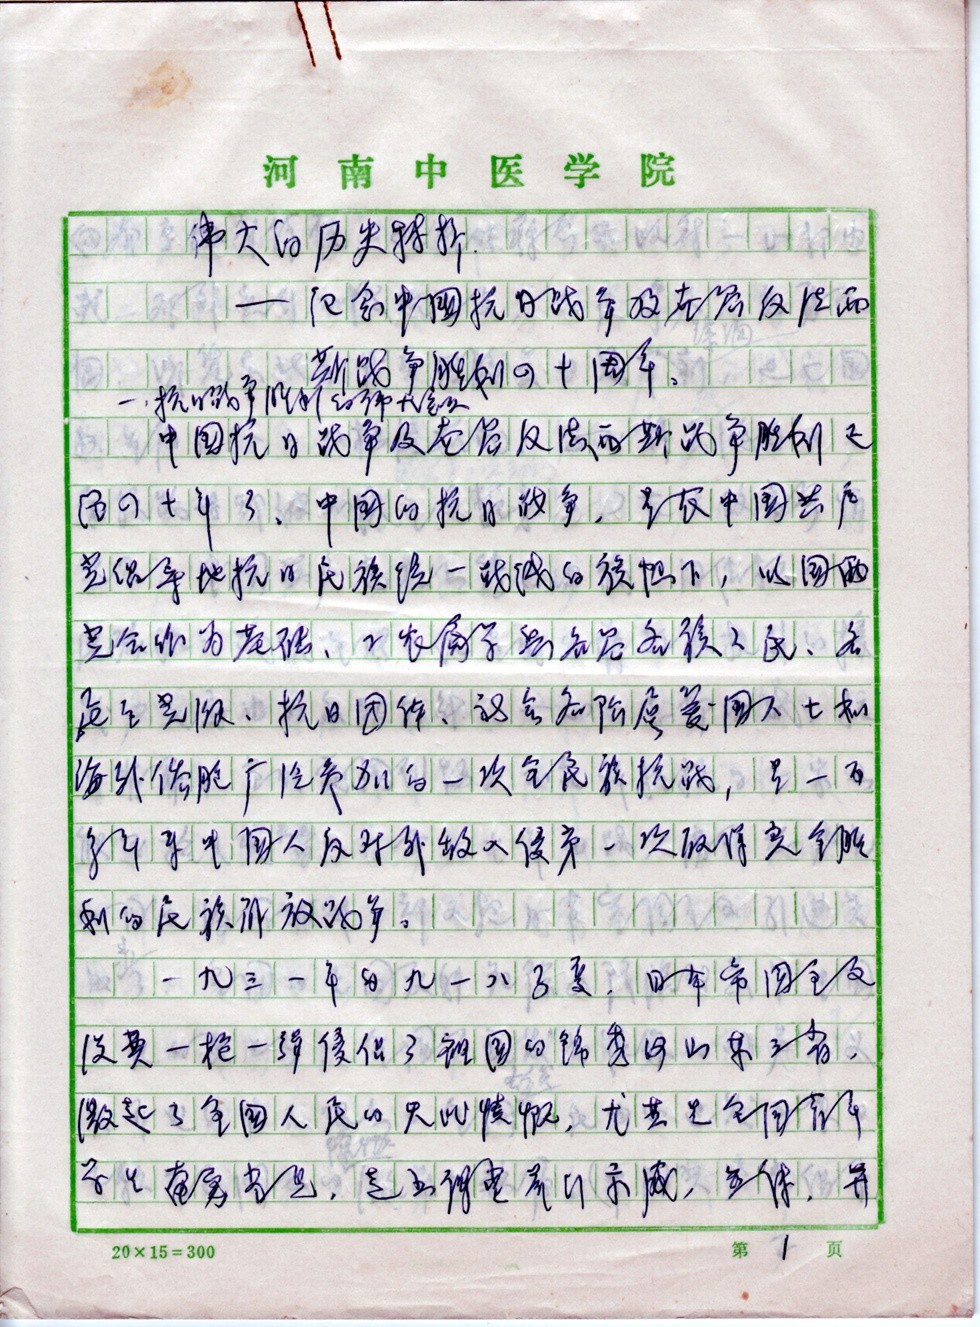 河南中医学院
伟大的历史转折
——纪念中国抗日战争及世界反法西
斯战争胜利四十周年。
一、抗日战争胜利的伟大意义
中国抗日战争及世界反法西斯战争胜利已
历四十年了、中国的抗日战争，是在中国共产
党倡导地抗日民族统一战线的旗帜下，以国两
党合作为基础、工农商学兵各界各族人民、各
民主党派、抗日团体、社会各阶层爱国人士和
海外侨胞广泛参加的一次全民族抗战，是一百
多年来中国人反对外敌入侵第一次取得完全胜
利的民族解放战争。
一九三一年的九一八事变，日本帝国主义
没费一枪一弹侵佔了祖国的锦秀河山东三省，
激起了全国人民的愤慨，尤其是全国青年
学生奋勇当先，走上街头举行示威，集体，并
20×15=300
第1页